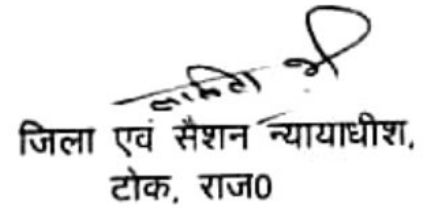 जिला एवं सैशन न्यायाधीश,
टोंक, राज0